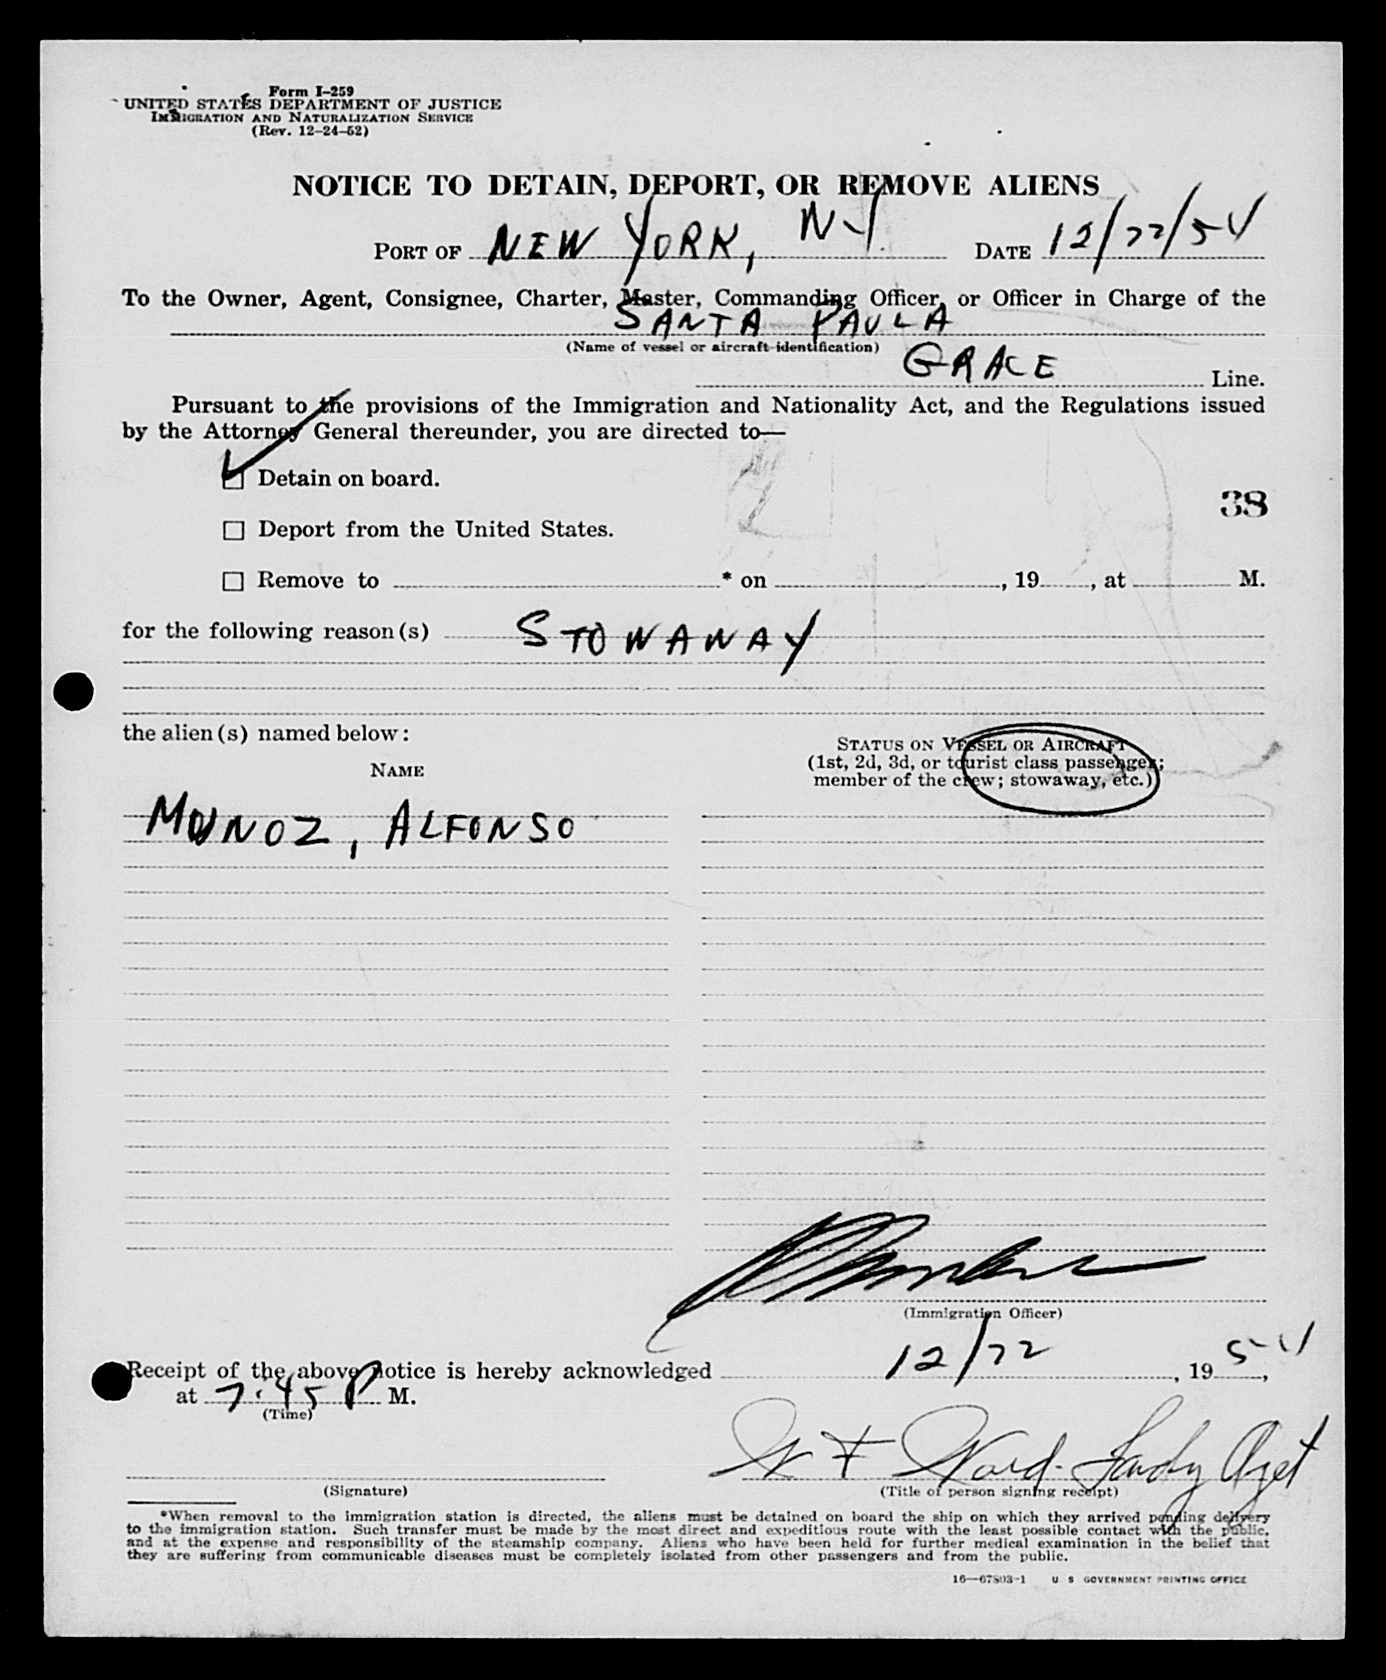 Form I-259
UNITED STATES DEPARTMENT OF JUSTICE
IMMIGRATION AND NATURALIZATION SERVICE
(Rev. 12-24-52)
NOTICE TO DETAIN, DEPORT, OR REMOVE ALIENS
PORT OF NEW YORK, NY. DATE 12/22/54
To the Owner, Agent, Consignee, Charter, Master, Commanding Officer, or Officer in Charge of the
SANTA PAULA
(Name of vessel or aircraft identification)
GRACE Line.
Pursuant to the provisions of the Immigration and Nationality Act, and the Regulations issued
by the Attorney General thereunder, you are directed to—
☑ Detain on board.
38
☐ Deport from the United States.
☐ Remove to * on , 19 , at M.
for the following reason(s) STOWAWAY
the alien(s) named below:
STATUS ON VESSEL OR AIRCRAFT
(1st, 2d, 3d, or tourist class passenger;
member of the crew; stowaway, etc.)
NAME
MUNOZ, ALFONSO
(Immigration Officer)
Receipt of the above notice is hereby acknowledged 12/22, 1954,
at 7:45 P M.
(Time)
W F Ward
(Signature)
(Title of person signing receipt)
*When removal to the immigration station is directed, the aliens must be detained on board the ship on which they arrived pending delivery
to the immigration station. Such transfer must be made by the most direct and expeditious route with the least possible contact with the public,
and at the expense and responsibility of the steamship company. Aliens who have been held for further medical examination in the belief that
they are suffering from communicable diseases must be completely isolated from other passengers and from the public.
16—67803-1 U S GOVERNMENT PRINTING OFFICE